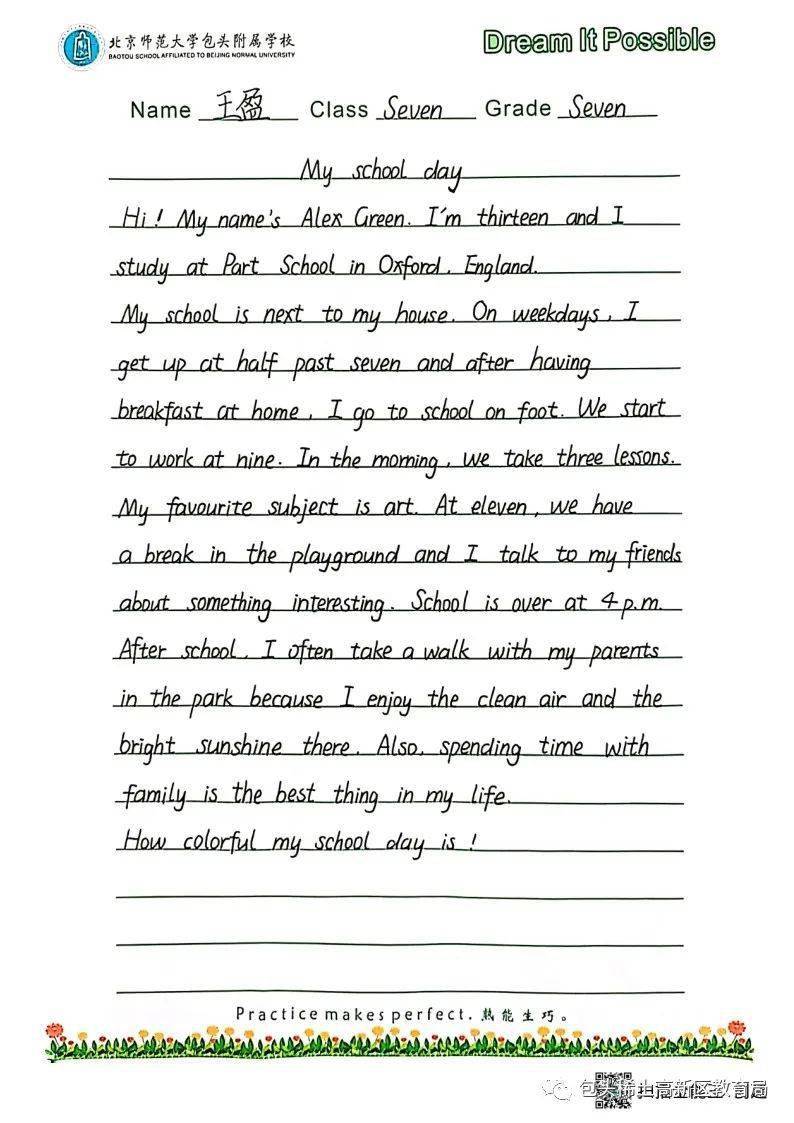 北京师范大学包头附属学校
BAOTOU SCHOOL AFFILIATED TO BEIJING NORMAL UNIVERSITY
Dream It Possible
Name 王盈 Class Seven Grade Seven
My school day
Hi! My name's Alex Green. I'm thirteen and I
study at Part School in Oxford, England.
My school is next to my house. On weekdays, I
get up at half past seven and after having
breakfast at home, I go to school on foot. We start
to work at nine. In the morning, we take three lessons.
My favourite subject is art. At eleven, we have
a break in the playground and I talk to my friends
about something interesting. School is over at 4 p.m.
After school, I often take a walk with my parents
in the park because I enjoy the clean air and the
bright sunshine there. Also, spending time with
family is the best thing in my life.
How colorful my school day is!
Practice makes perfect. 熟能生巧。
包头稀土高新区教育局